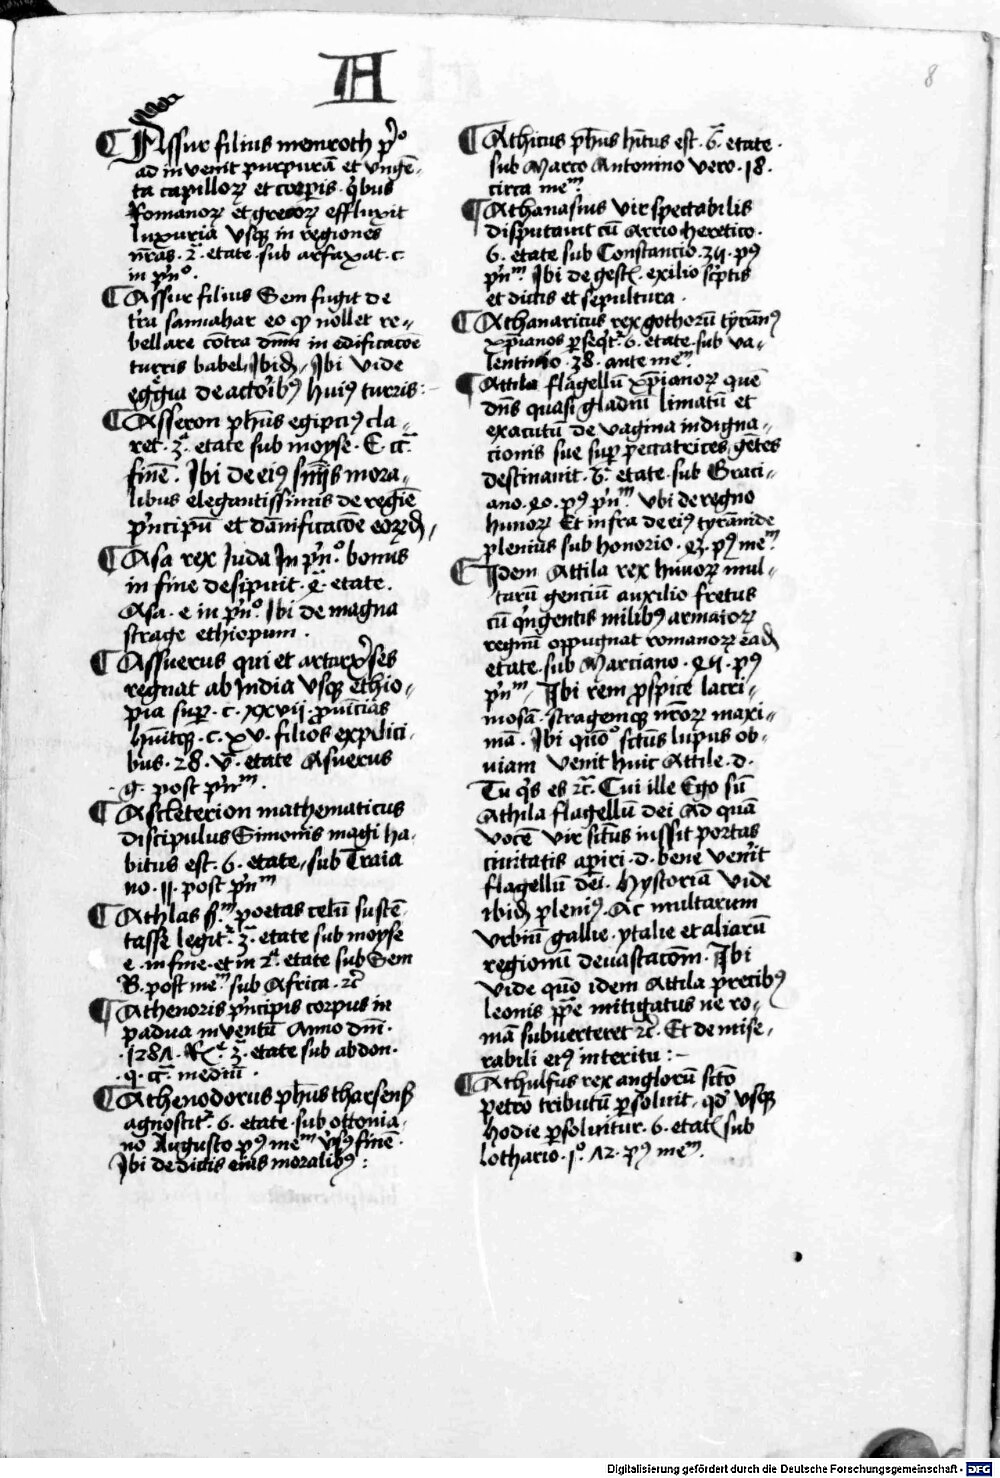 A
8
¶ Assur filius memroth p̄o
ad in venit purpurā et vngē-
ta capilloꝝ et corꝑis q̇bus
Romanoꝝ et grecoꝝ effluxit
luxuria vsqꝫ in regiones
nr̄as. 2. etate sub arfaxat. c.
in p̄no.
¶ Assur filius Sem fugit de
tr̄a sannahar eo ꝙ nollet re-
bellare cōtra dnm̄ in edificacōe
turris babel, Ibid, Ibi vide
de actoībꝰ huiꝰ turris:
¶ Asseron ph̄us egipciꝰ cla-
ret. 3. etate sub moyse. E. cc̄
finē. Ibi de eiꝰ mora-
libus elegantissimis de regiē
p̄ncipū et dānificacōe
¶ Asa rex Juda In p̄no bonus
in fine desipuit. 4. etate.
Asa. e in p̄no. Ibi de magna
strage ethiopum.
¶ Assuerus qui et artarx̄ses
regnat ab India vsqꝫ ethio-
pia suꝑ. c. xxvij. ꝓuīcias
huītqꝫ. c. xv. filios
bus. 28. v. etate Asuerus
g. post p̄nm.
¶ Ascleterion mathematicus
discipulus Simonis magi ha-
bitus est. 6. etate, sub Traia
no. II. post p̄nm
¶ Athlas poetas celū sustē-
tasse legit̄. 3. etate sub moyse
e. in fine. et in 2. etate sub Sem
B. post me. sub Africa. 2c̄
¶ Athenoris p̄ncipis corpus in
padua inventū Anno dm̄.
1281. 3. etate sub abdon.
q. cc̄ mediū.
¶ Athenodorus ph̄us tharsensꝭ
agnoscit̄. 6. etate sub ottonia-
no Augusto pꝰ mem finē.
Ibi de dictis eius moralibꝰ:
¶ Athicus ph̄us hītus est. 6. etate.
sub Marco Antonino vero. 18.
circa mem.
¶ Athanasius vir spectabilis
disputauit cū Arrio heretico.
6. etate sub Constancio. pꝰ
p̄nm. Ibi de gestꝭ. exilio sc̄ptis
et dictis et sepultura.
¶ Athanaricus rex gothorū tyrānꝰ
xp̄ianos ꝑseqt̄. 6. etate sub va-
lentino. 38. ante mem
¶ Attila flagellū xp̄ianoꝝ quē
dn̄s quasi gladiū limatū et
exacutū de vagina indigna-
cionis sue suꝑ peccatrices gētes
destinauit. 6. etate. sub Graci-
ano. 40. pꝰ p̄nm. vbi de regno
hunoꝝ Et infra de eiꝰ tyrānide
plenius sub honorio. pꝰ mem
¶ Idem Attila rex hunoꝝ mul-
tarū genciū auxilio fretus
cū q̇ngentis milibꝰ armatoꝝ
regnū oppugnat romanoꝝ ead
etate. sub Marciano. pꝰ
p̄nm, Ibi rem ꝓspice lacri-
mosā. stragemqꝫ nr̄oꝝ maxi-
mā. Ibi quo sc̄tus lupus ob-
uiam venit huic Attile. d.
Tu q̇s es 2c̄. Cui ille Ego sū
Athila flagellū dei Ad quā
vocē vir sc̄tus iussit portas
ciuitatis aꝑiri. d. bene venīt
flagellū dei. Hystoriā vide
ibid pleniꝰ. Ac multarum
vrbiū gallie. ytalie et aliarū
regionū deuastacōm. Ibi
vide quo idem Attila precibꝰ
leonis pp̄e mitigatus ne ro-
mā subuerteret 2c̄. Et de mise-
rabili eiꝰ interitu:-
¶ Athulfus rex anglorū scto
petro tributū ꝑsoluit. qd̄ vsqꝫ
hodie ꝑsoluitur. 6. etatꝭ sub
lothario. 1o. 12. pꝰ mem.
Digitalisierung gefördert durch die Deutsche Forschungsgemeinschaft - DFG